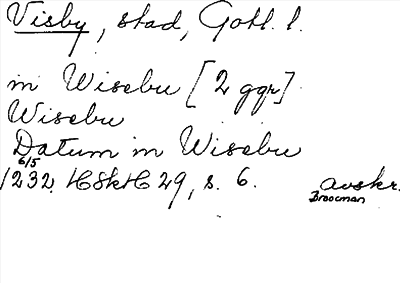 Visby, stad, Gotl. l.
in Wisebu [2 ggr]
Wisebu
Datum in Wisebu
6/5
1232 HSkH 29, s. 6. avskr.
Broocman